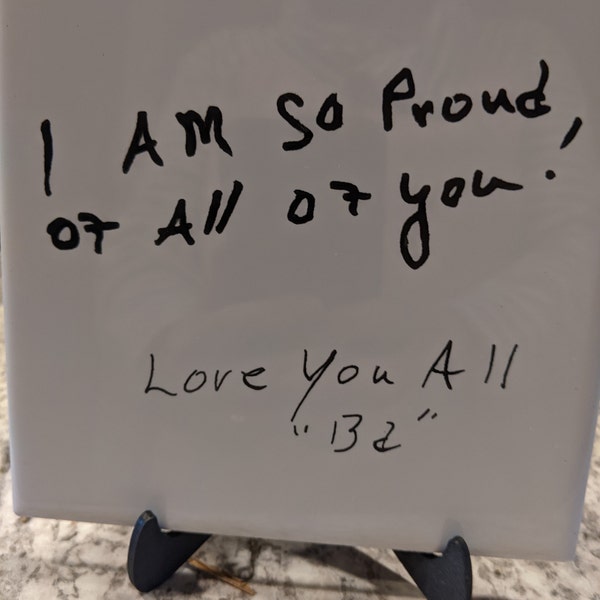 I AM SO Proud,
of All of you!
Love You All
"Ba"